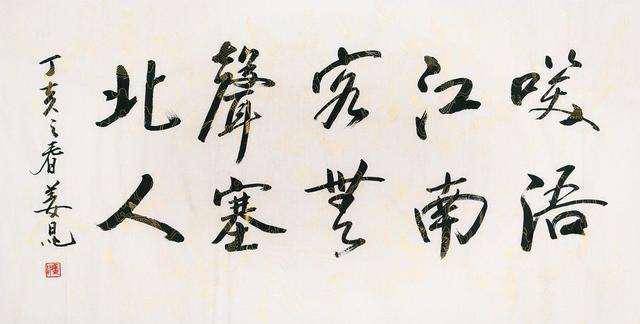 咲语
江南
客無
聲塞
北人
丁亥之春 姜昆